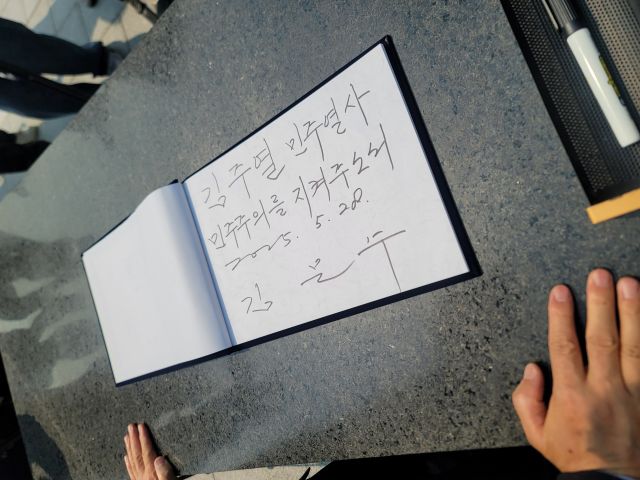 김주열 민주열사
민주주의를 지켜주소서
2025. 5. 28.
김 문 수